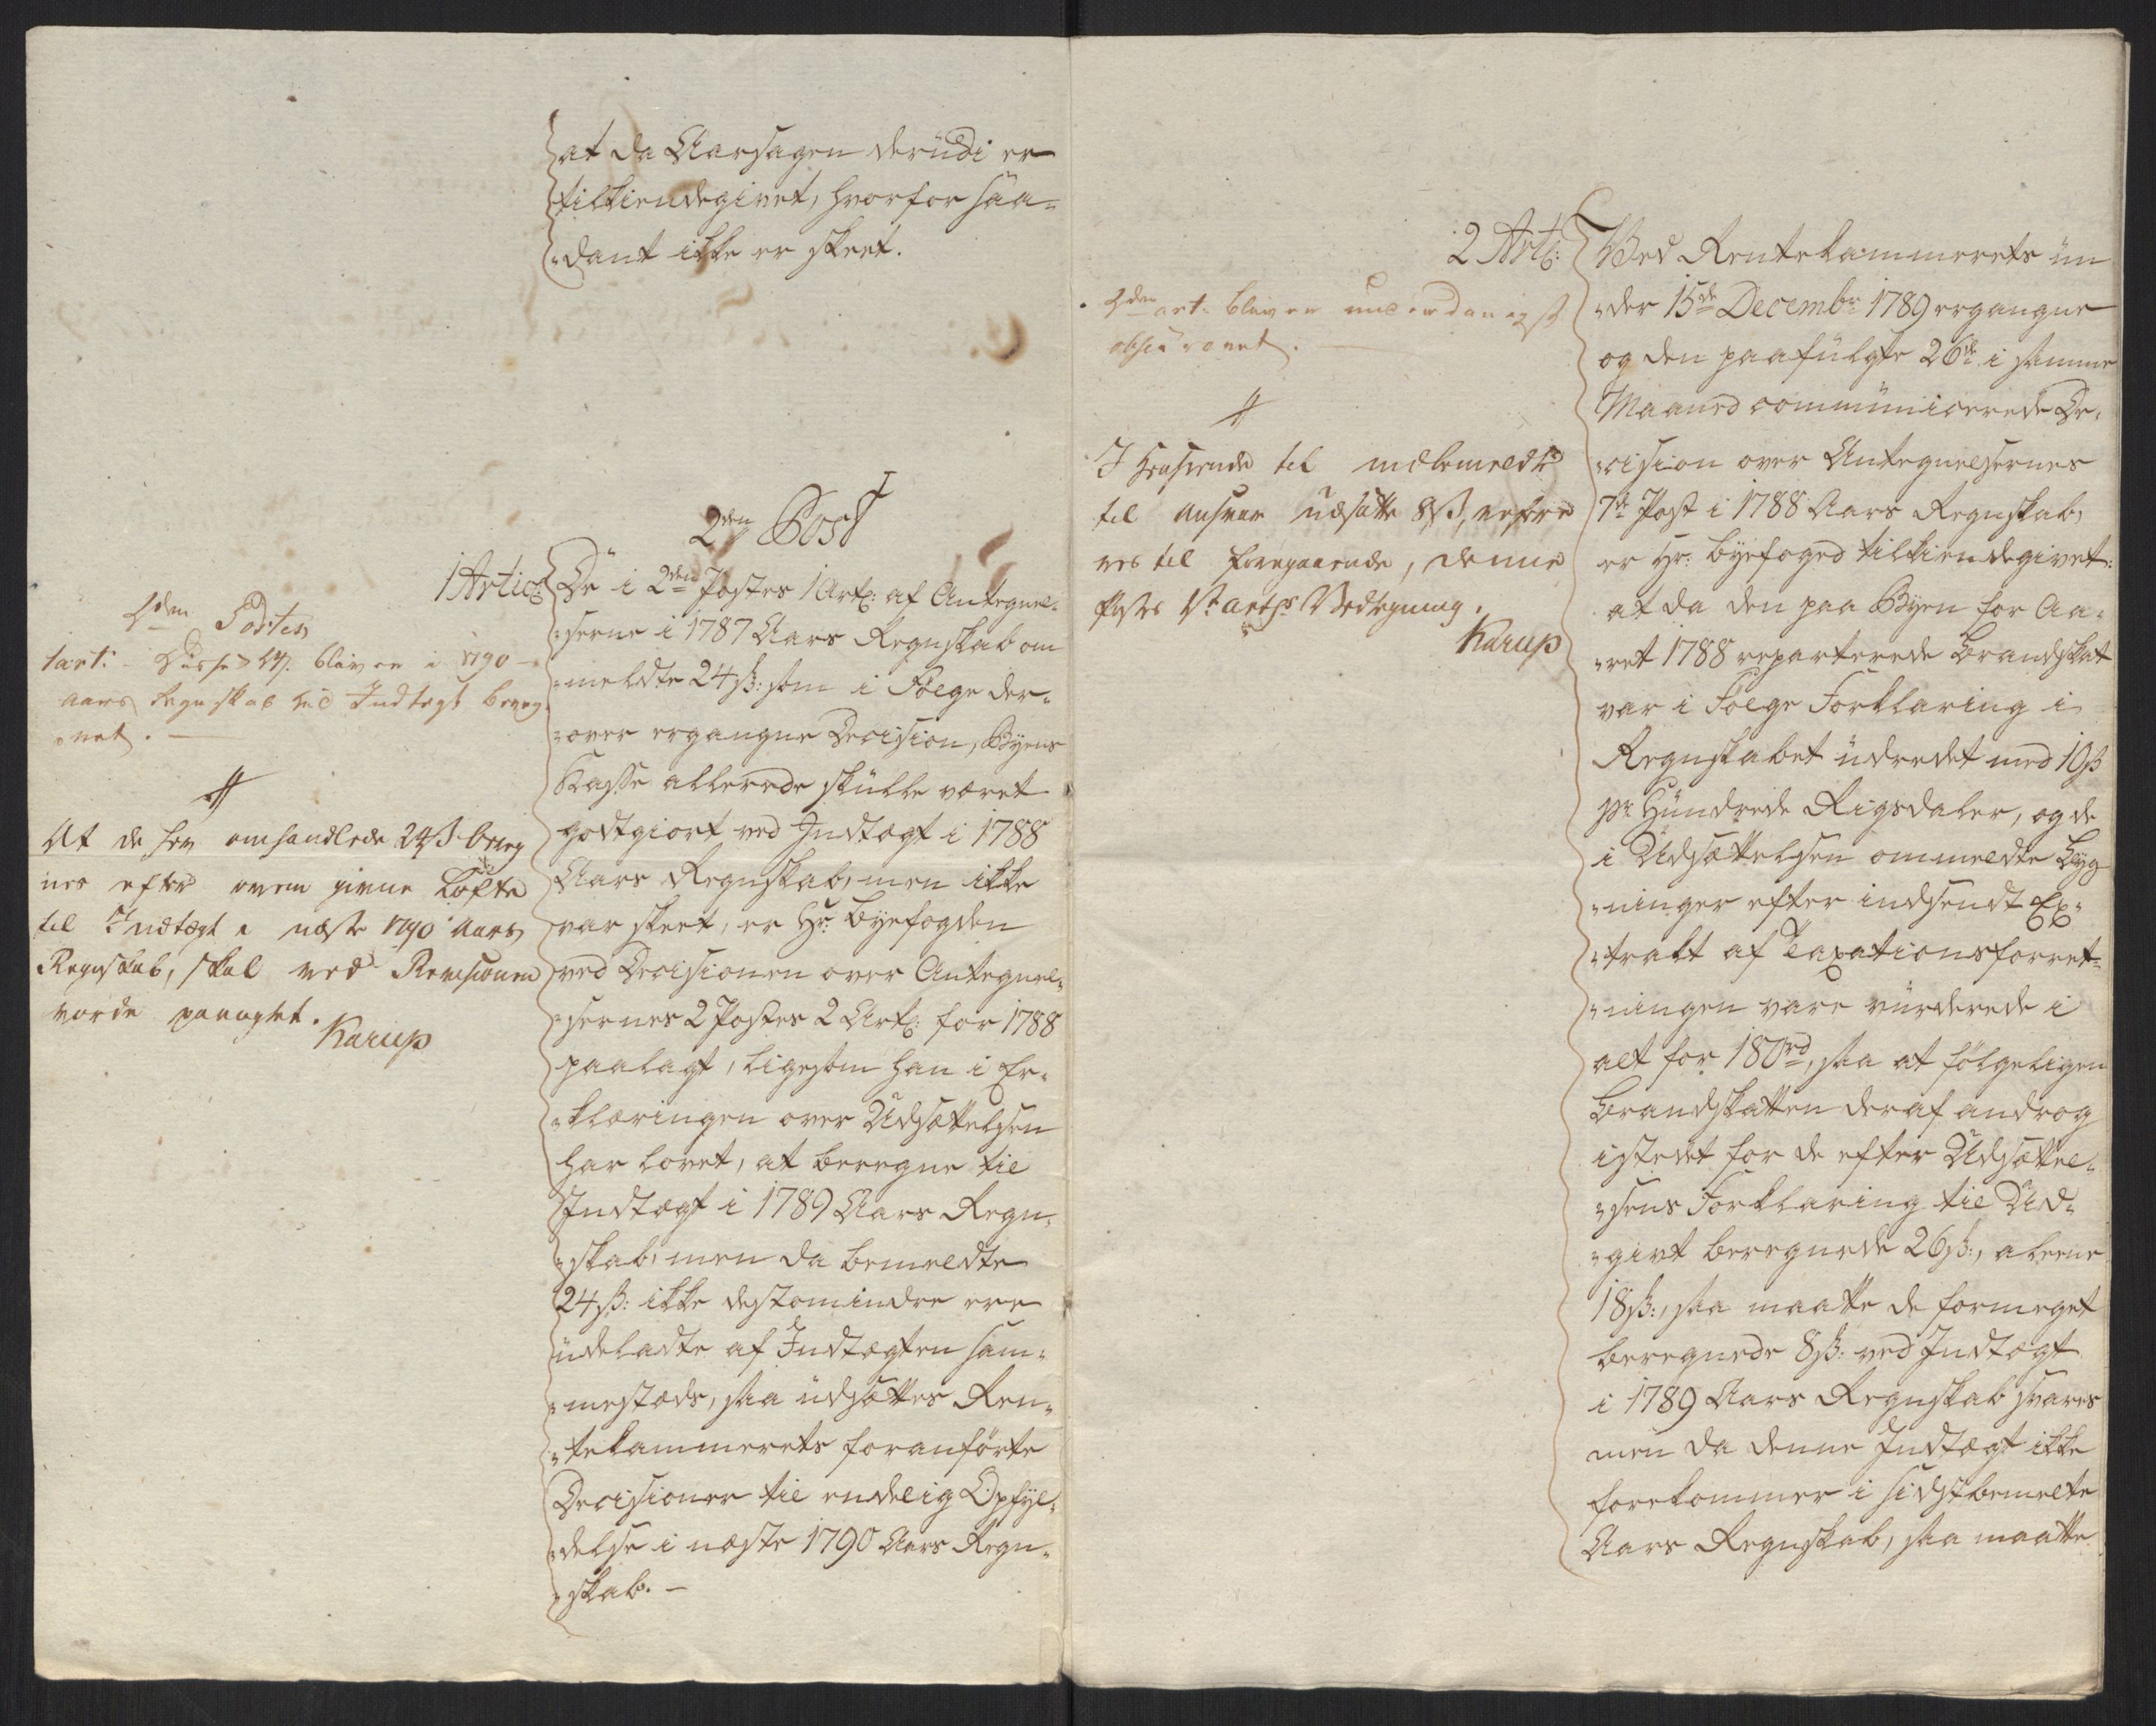 at da Aarsagen derüdi er
tilkiendegivet, hvorfor saa-
dant ikke er skeet.
2den Post
1 Artic:
De i 2den Postes 1 Art: af Antegnel-
serne i 1787 Aars Regnskab om
meldte 24 ß: som i Følge der-
over ergangne Decision, Byens
Kasse allerede skulle været
godtgiort ved Indtægt i 1788
Aars Regnskab, men ikke
var skeet, er Hr: Byefogden
ved Decisionen over Antegnel-
sernes 2 Postes 2 Art: for 1788
paalagt, ligesom han i Er-
klæringen over Udsættelsen
har lovet, at beregne til
Indtægt i 1789 Aars Regn-
skab, men da bemeldte
24 ß: ikke destomindre ere
üdeladte af Indtægten sam-
mestæds, saa üdsættes Ren-
tekammerets foranførte
Decisioner til endelig Opfyl-
delse i næste 1790 Aars Regn-
skab. -
2den Posten
1 art: - Disse 24 ß. bliver i 1790
aars Regnskab ved Indtægt bereg
net. -
At de her omhandlede 24 ß bereg
nes efter oven givne Løfte
til Indtægt i næste 1790 Aars
Regnskab, skal ved Revisionen
vorde paaagtet.
Karup
2 Art:
Ved Rentekammerets ün
der 15de Decembr 1789 ergangne
og den paafülgte 26de i samme
Maaned commünicerede De-
cision over Antegnelsernes
7de Post i 1788 Aars Regnskab,
er Hr: Byefoged tilkiendegivet:
at da den paa Byen for Aa-
ret 1788 reparterede Brandskat
var i Følge Forklaring i
Regnskabet üdredet med 10 ß
pr Hündrede Rigsdaler, og de
i Udsættelsen ommeldte Byg
ninger efter indsendt Ex-
trakt af Taxationsforret-
ningen vare vürderede i
alt for 180 rd, saa at følgeligen
Brandskatten deraf androg
istedet for de efter Udsættel-
sens Forklaring til Ud-
givt beregnede 26 ß:, aleene
18 ß:, saa maatte de formeget
beregnede 8 ß: ved Indtægt
i 1789 Aars Regnskab svares
men da denne Indtægt ikke
forekommer i sidstbemelte
Aars Regnskab, saa maatte
2den art: bliver underdanigst
observeret. -
I Henseende til indbemeldte
til Ansvar üdsatte 8 ß, refere
res til foregaaende, denne
Postes 1st: art:s Bedtegning.
Karup